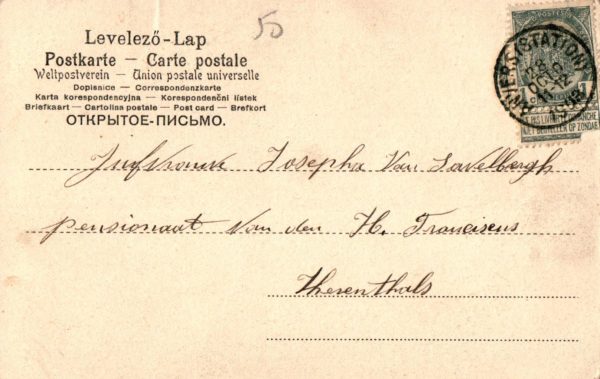 50
Levelező-Lap
Postkarte — Carte postale
Weltpostverein — Union postale universelle
Dopisnice — Correspondenzkarte
Karta korespondencyjna — Korespondenční lístek
Briefkaart — Cartolina postale — Post card — Brefkort
ОТКРЫТОЕ-ПИСЬМО.
ANVERS (STATION)
NIET BESTELLEN OP ZONDAG
Jufvrouw Josepha Van Lavelbergh
pensionaat Van den H. Franciscus
Herenthals